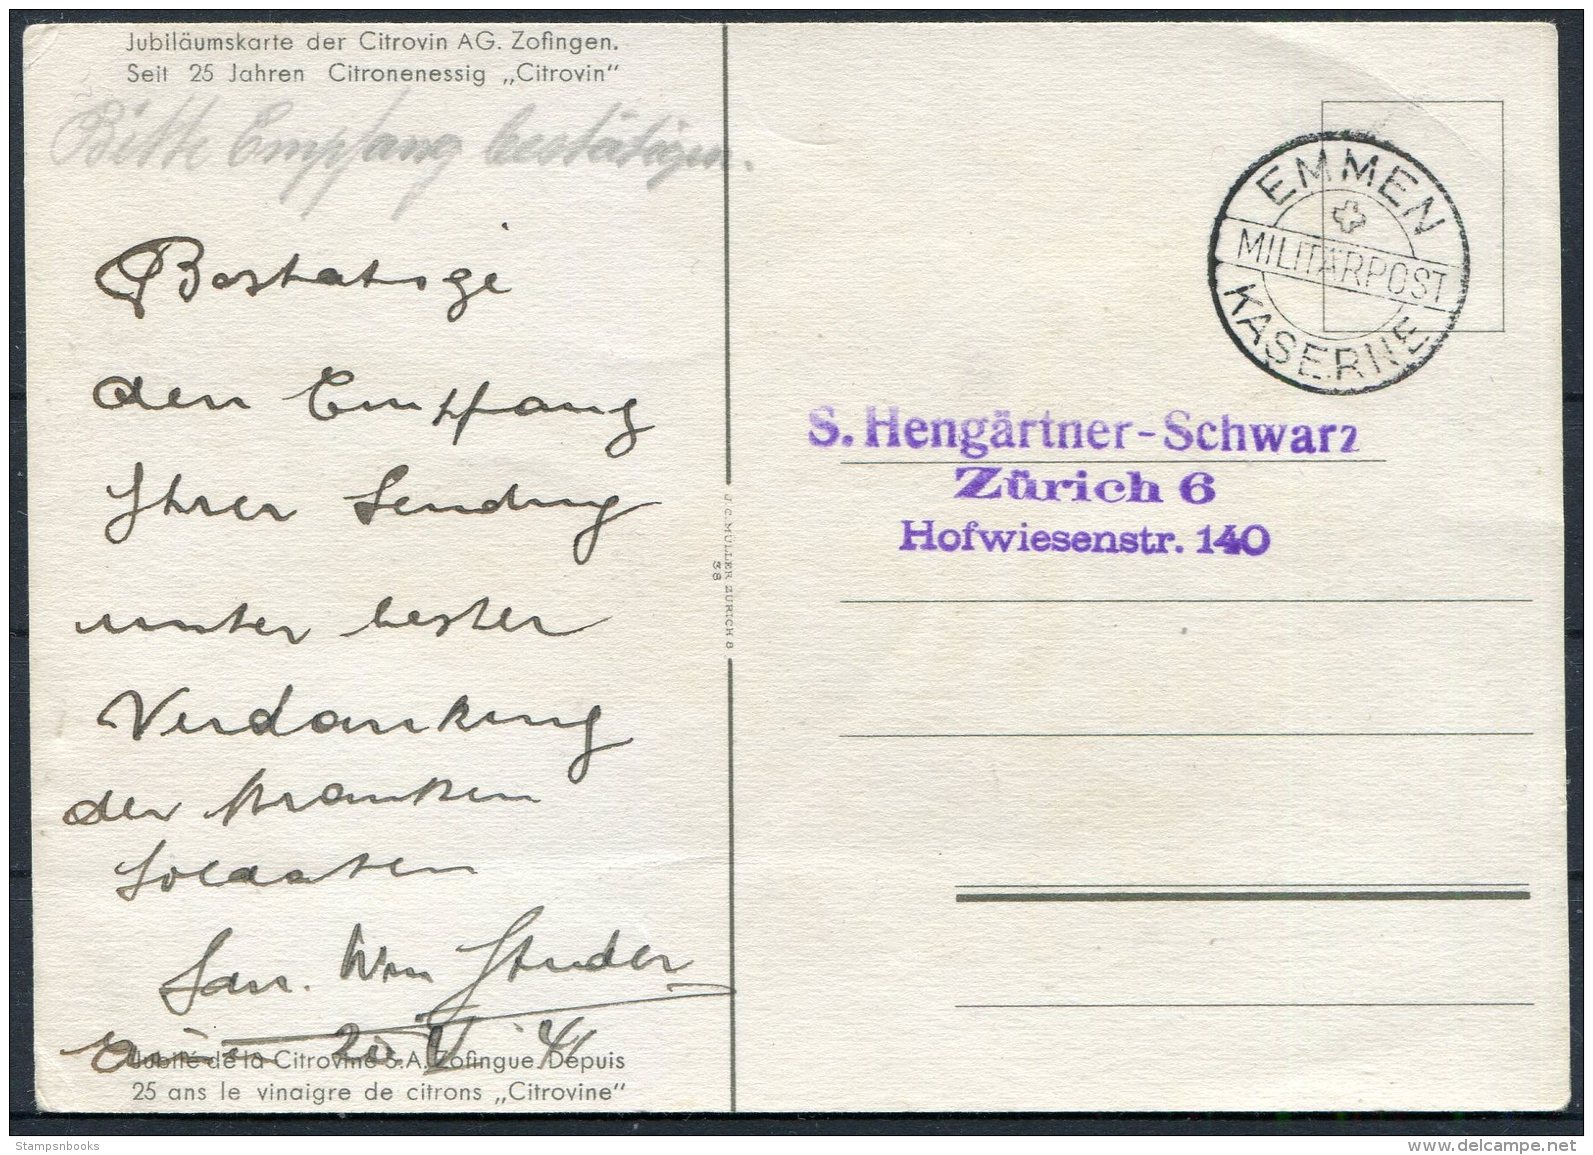 Jubiläumskarte der Citrovin AG. Zofingen.
Seit 25 Jahren Citronenessig „Citrovin"
Bitte Empfang bestätigen.
Bestatige
den Empfang
Ihrer Sendung
unter bester
Verdankung
der Kranken
Soldaten
San. Wm Studer
20. V 41
Jubilé de la Citrovine S.A. Zofingue Depuis
25 ans le vinaigre de citrons „Citrovine"
J. C. MÜLLER ZÜRICH 8
38
EMMEN
MILITÄRPOST
KASERNE
S. Hengärtner-Schwarz
Zürich 6
Hofwiesenstr. 140
Stampsnbooks
www.delcampe.net